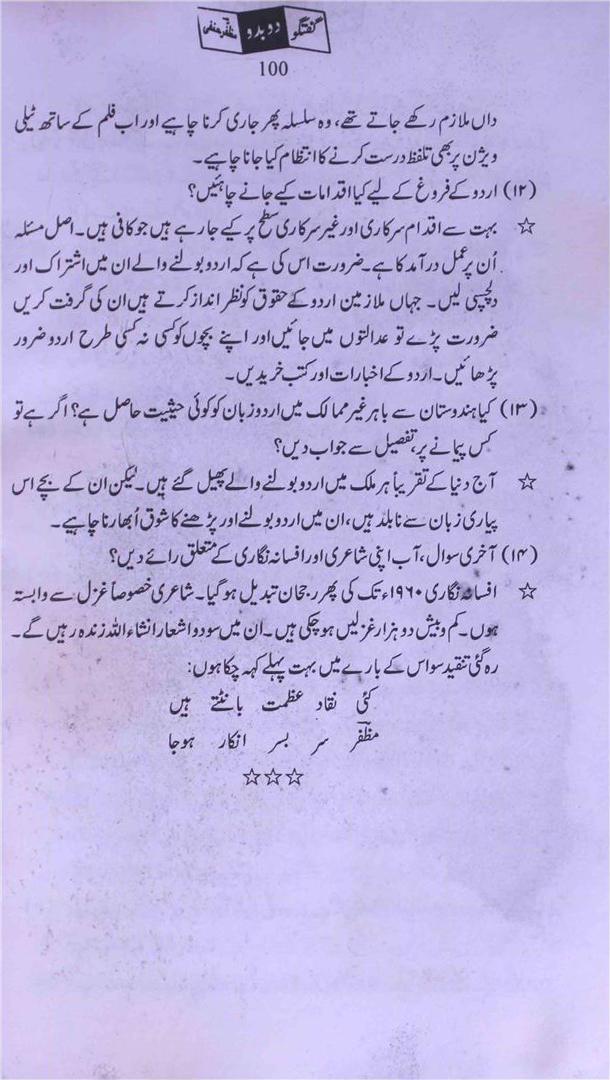 گفتگو دوبدو مظفر حنفی
100
داں ملازم رکھے جاتے تھے، وہ سلسلہ پھر جاری کرنا چاہیے اور اب فلم کے ساتھ ٹیلی
ویژن پر بھی تلفظ درست کرنے کا انتظام کیا جانا چاہیے۔
(۱۲) اردو کے فروغ کے لیے کیا اقدامات کیے جانے چاہئیں؟
☆ بہت سے اقدام سرکاری اور غیر سرکاری سطح پر کیے جا رہے ہیں جو کافی ہیں۔ اصل مسئلہ
اُن پر عمل درآمد کا ہے۔ ضرورت اس کی ہے کہ اردو بولنے والے ان میں اشتراک اور
دلچسپی لیں۔ جہاں ملازمین اردو کے حقوق کو نظر انداز کرتے ہیں ان کی گرفت کریں
ضرورت پڑے تو عدالتوں میں جائیں اور اپنے بچوں کو کسی نہ کسی طرح اردو ضرور
پڑھائیں۔ اردو کے اخبارات اور کتب خریدیں۔
(۱۳) کیا ہندوستان سے باہر غیر ممالک میں اردو زبان کو کوئی حیثیت حاصل ہے؟ اگر ہے تو
کس پیمانے پر، تفصیل سے جواب دیں؟
☆ آج دنیا کے تقریباً ہر ملک میں اردو بولنے والے پھیل گئے ہیں۔ لیکن ان کے بچے اس
پیاری زبان سے نابلد ہیں، ان میں اردو بولنے اور پڑھنے کا شوق اُبھارنا چاہیے۔
(۱۴) آخری سوال، آپ اپنی شاعری اور افسانہ نگاری کے متعلق رائے دیں؟
☆ افسانہ نگاری ۱۹۶۰ء تک کی پھر رجحان تبدیل ہو گیا۔ شاعری خصوصاً غزل سے وابستہ
ہوں۔ کم و بیش دو ہزار غزلیں ہو چکی ہیں۔ ان میں سو دو اشعار انشاء اللہ زندہ رہیں گے۔
رہ گئی تنقید سو اس کے بارے میں بہت پہلے کہہ چکا ہوں:
کئی نقاد عظمت بانٹتے ہیں
مظفر سر بسر انکار ہو جا
☆☆☆